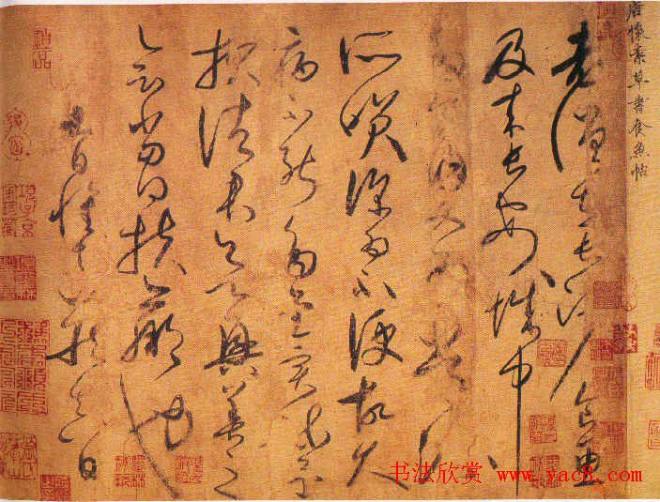 唐懷素草書食魚帖
老僧在長沙食魚
及来長安城中
多食肉又為常流
所笑深為不便故久
病不能多書實疏還
報諸君欲興善之
會當得扶羸也
九日懷素藏真白
书法欣赏 www.yac8.com